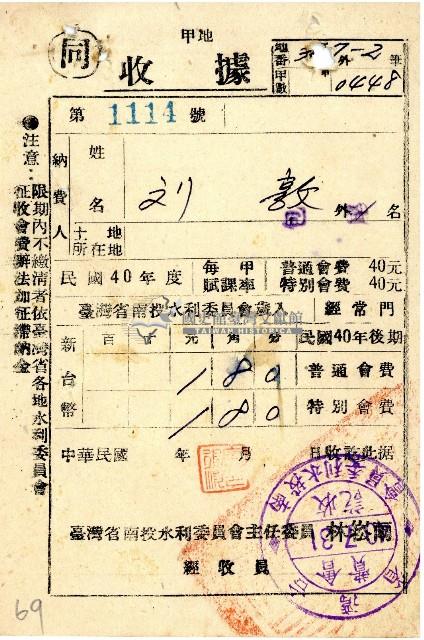 同
甲地
收據
地番甲數
7-2
外 筆
0448
第 1114 號
納費人
姓名
刘 敦
外 名
土地所在地
民國40年度
每甲賦課率
普通會費 40元
特別會費 40元
臺灣省南投水利委員會歲入
經常門
新台幣
百 拾 元 角 分
民國40年後期
1 8 0
普通會費
1 8 0
特別會費
中華民國 年 月 日收訖此据
臺灣省南投水利委員會主任委員 林
經收員
●注意：限期內不繳清者依臺灣省各地水利委員會
征收會費辦法加征滯納金
國史館臺灣文獻館
TAIWAN HISTORICA
69